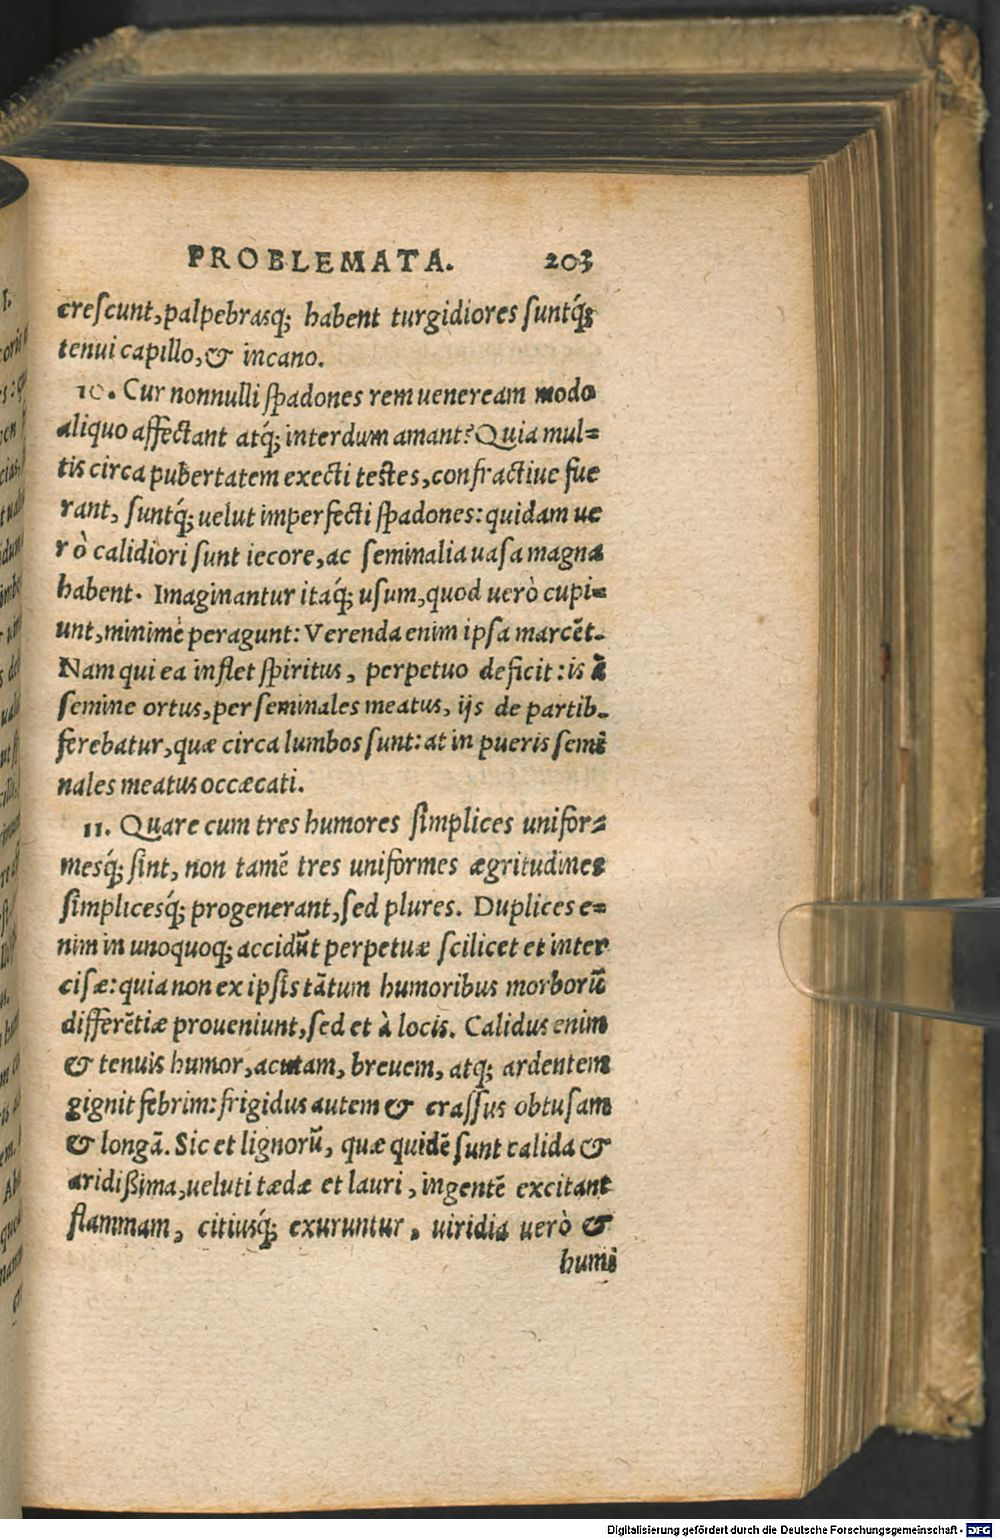 PROBLEMATA. 203
creſcunt, palpebrasq́; habent turgidiores ſuntq́;
tenui capillo, & incano.
10. Cur nonnulli ſpadones rem ueneream modo
aliquo affectant atq́; interdum amant? Quia mul=
tis circa pubertatem execti teſtes, confractiue fue
rant, ſuntq́; uelut imperfecti ſpadones: quidam ue
rò calidiori ſunt iecore, ac ſeminalia uaſa magna
habent. Imaginantur itaq́; uſum, quod uerò cupi=
unt, minimè peragunt: Verenda enim ipſa marcẽt.
Nam qui ea inflet ſpiritus, perpetuo deficit: is à
ſemine ortus, per ſeminales meatus, ijs de partib.
ferebatur, quæ circa lumbos ſunt: at in pueris ſemi
nales meatus occæcati.
11. Quare cum tres humores ſimplices unifor=
mesq́; ſint, non tamẽ tres uniformes ægritudines
ſimplicesq́; progenerant, ſed plures. Duplices e=
nim in unoquoq; accidũt perpetuæ ſcilicet et inter
ciſæ: quia non ex ipſis tãtum humoribus morborũ
differẽtiæ proueniunt, ſed et à locis. Calidus enim
& tenuis humor, acutam, breuem, atq; ardentem
gignit febrim: frigidus autem & craſſus obtuſam
& longã. Sic et lignorũ, quæ quidẽ ſunt calida &
aridißima, ueluti tædæ et lauri, ingentẽ excitant
flammam, citiusq́; exuruntur, uiridia uerò &
humi
Digitalisierung gefördert durch die Deutsche Forschungsgemeinschaft - DFG